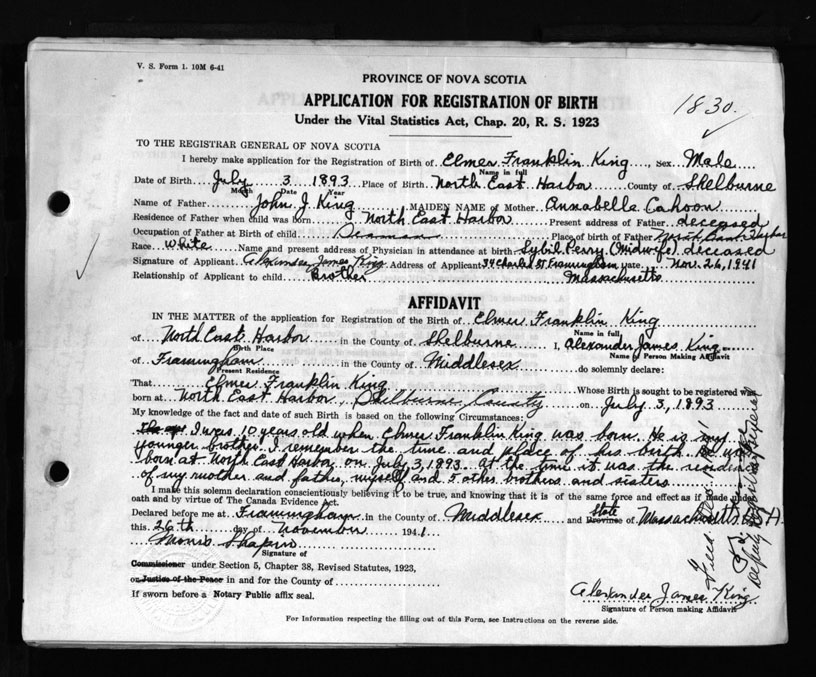 V. S. Form 1. 10M 6-41
PROVINCE OF NOVA SCOTIA
APPLICATION FOR REGISTRATION OF BIRTH
1830.
Under the Vital Statistics Act, Chap. 20, R. S. 1923
TO THE REGISTRAR GENERAL OF NOVA SCOTIA
I hereby make application for the Registration of Birth of Elmer Franklin King Sex Male
Name in full
Date of Birth July 3 1893 Place of Birth North East Harbor County of Shelburne
Month Date Year
Name of Father John J. King MAIDEN NAME of Mother Annabelle Cahoon
Residence of Father when child was born North East Harbor Present address of Father deceased
Occupation of Father at Birth of child Seaman Place of birth of Father North East Harbor
Race white Name and present address of Physician in attendance at birth Sybil Perry (Midwife) deceased
Signature of Applicant Alexander James King Address of Applicant St Framingham Date Nov. 26, 1941
Relationship of Applicant to child Brother Massachusetts
AFFIDAVIT
IN THE MATTER of the application for Registration of the Birth of Elmer Franklin King
Name in full
of North East Harbor in the County of Shelburne I, Alexander James King
Birth Place Name of Person Making Affidavit
of Framingham in the County of Middlesex do solemnly declare:
Present Residence
That Elmer Franklin King Whose Birth is sought to be registered was
born at North East Harbor, Shelburne County on July 3, 1893
My knowledge of the fact and date of such Birth is based on the following Circumstances:
I was 10 years old when Elmer Franklin King was born. He is my
younger brother. I remember the time and place of his birth. He was
born at North East Harbor on July 3, 1893. At the time it was the residence
of my mother and father, myself and 5 other brothers and sisters.
I make this solemn declaration conscientiously believing it to be true, and knowing that it is of the same force and effect as if made under
oath and by virtue of The Canada Evidence Act.
Declared before me at Framingham in the County of Middlesex and State Province of Massachusetts
this 26th day of November 1941
Morris Shapiro
Signature of
Commissioner under Section 5, Chapter 38, Revised Statutes, 1923,
or Justice of the Peace in and for the County of
If sworn before a Notary Public affix seal.
Alexander James King
Signature of Person making Affidavit
For Information respecting the filling out of this Form, see Instructions on the reverse side.
Deputy Registrar General